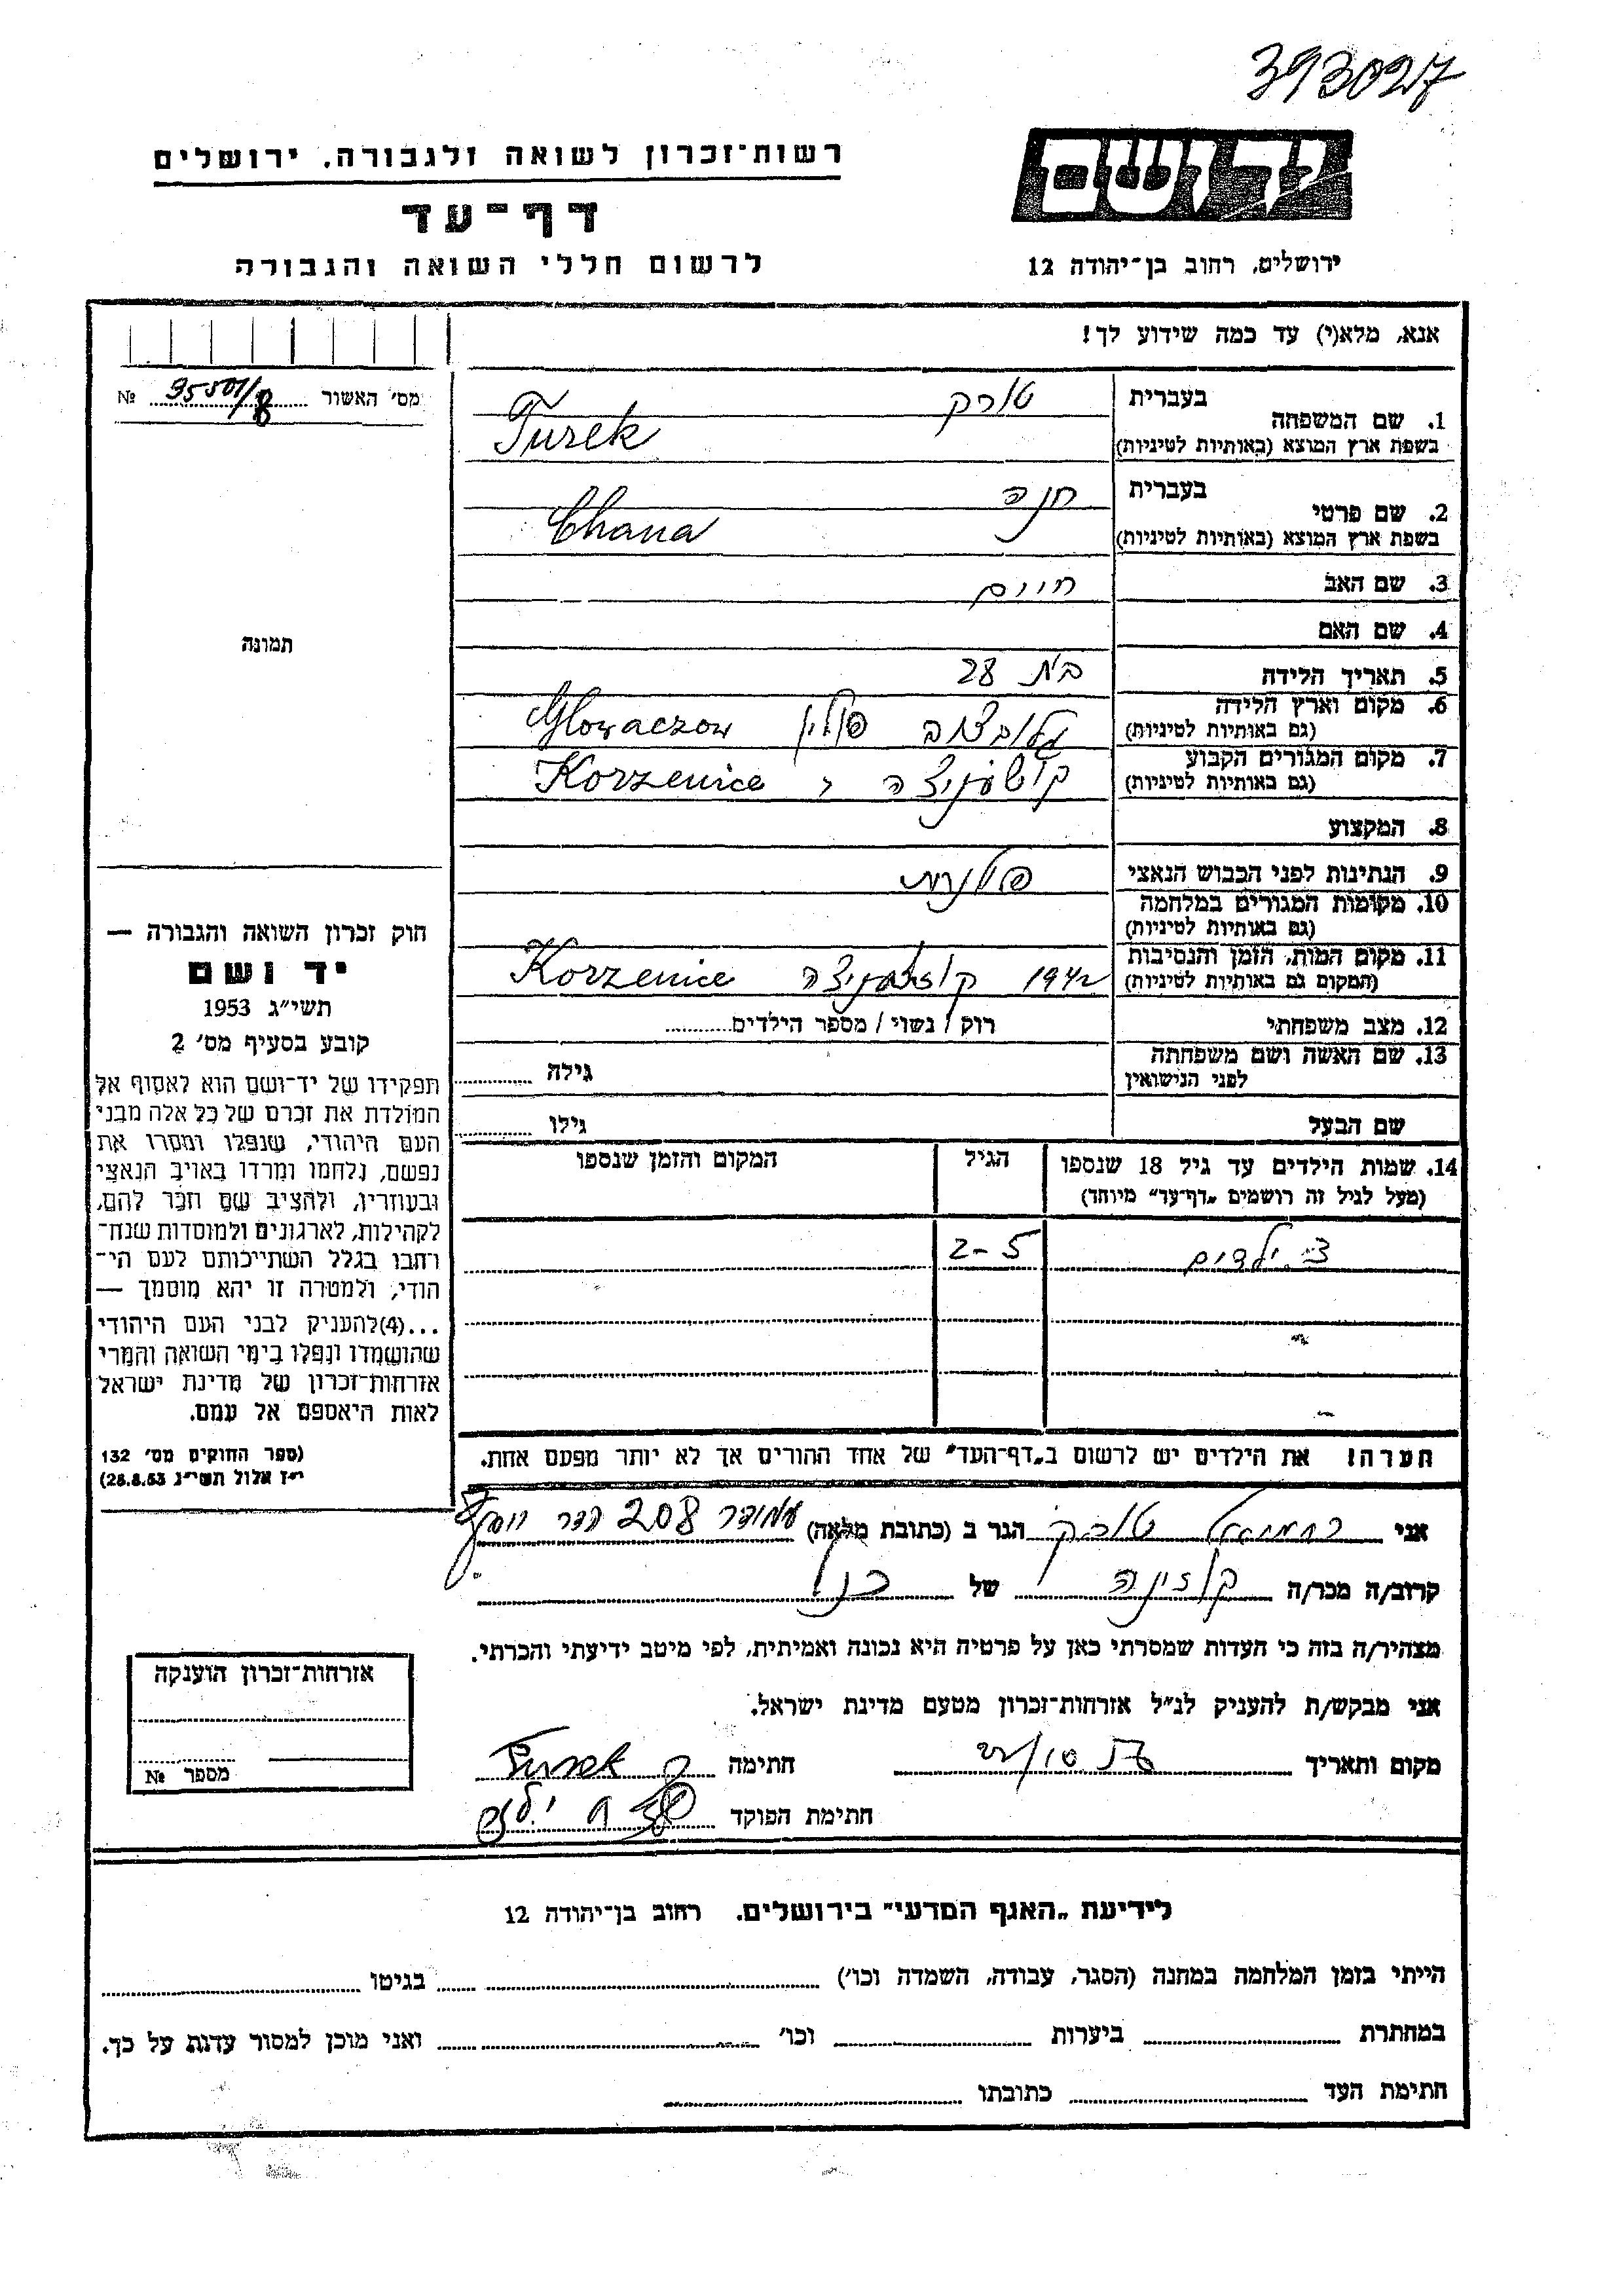 393027
יד ושם
רשות־זכרון לשואה ולגבורה. ירושלים
דף־עד
לרשום חללי השואה והגבורה
ירושלים, רחוב בן־יהודה 12
אנא, מלא(י) עד כמה שידוע לך!
מס׳ האשור 95501/8 №
1. שם המשפחה בעברית טורק
בשפת ארץ המוצא (באותיות לטיניות) Turek
2. שם פרטי בעברית חנה
בשפת ארץ המוצא (באותיות לטיניות) Chana
3. שם האב חיים
4. שם האם
5. תאריך הלידה בת 28
6. מקום וארץ הלידה גלובצוב פולין Glowaczow
(גם באותיות לטיניות)
7. מקום המגורים הקבוע Korzenice
(גם באותיות לטיניות)
8. המקצוע
9. הנתינות לפני הכבוש הנאצי פולנית
10. מקומות המגורים במלחמה
(גם באותיות לטיניות)
11. מקום המות, הזמן והנסיבות 1942 Korzenice
(המקום גם באותיות לטיניות)
12. מצב משפחתי רוק / נשוי / מספר הילדים
13. שם האשה ושם משפחתה גילה
לפני הנישואין
שם הבעל גילו
14. שמות הילדים עד גיל 18 שנספו הגיל המקום והזמן שנספו
(מעל לגיל זה רושמים „דף־עד״ מיוחד)
2 ילדים 2-5
הערה! את הילדים יש לרשום ב„דף־העד״ של אחד ההורים אך לא יותר מפעם אחת.
תמונה
חוק זכרון השואה והגבורה —
יד ושם
תשי״ג 1953
קובע בסעיף מס׳ 2
תפקידו של יד־ושם הוא לאסוף אל
המולדת את זכרם של כל אלה מבני
העם היהודי, שנפלו ומסרו את
נפשם, נלחמו ומרדו באויב הנאצי
ובעוזריו, ולהציב שם וזכר להם,
לקהילות, לארגונים ולמוסדות שנח־
רבו בגלל השתייכותם לעם הי־
הודי, ולמטרה זו יהא מוסמך —
...(4) להעניק לבני העם היהודי
שהושמדו ונפלו בימי השואה והמרי
אזרחות־זכרון של מדינת ישראל
לאות היאספם אל עמם.
(ספר החוקים מס׳ 132
י״ז אלול תשי״ג 28.8.53)
אני ירחמיאל טורק הגר ב (כתובת מלאה) עמידר 208 הדר יוסף
קרוב/ה מכר/ה קוזינה של הנ״ל
מצהיר/ה בזה כי העדות שמסרתי כאן על פרטיה היא נכונה ואמיתית, לפי מיטב ידיעתי והכרתי.
אני מבקש/ת להעניק לנ״ל אזרחות־זכרון מטעם מדינת ישראל.
מקום ותאריך חתימה Turek
חתימת הפוקד
אזרחות־זכרון הוענקה
מספר №
לידיעת „האגף המדעי״ בירושלים. רחוב בן־יהודה 12
הייתי בזמן המלחמה במחנה (הסגר, עבודה, השמדה וכו׳) בגיטו
במחתרת ביערות וכו׳ ואני מוכן למסור עדות על כך.
חתימת העד כתובתו